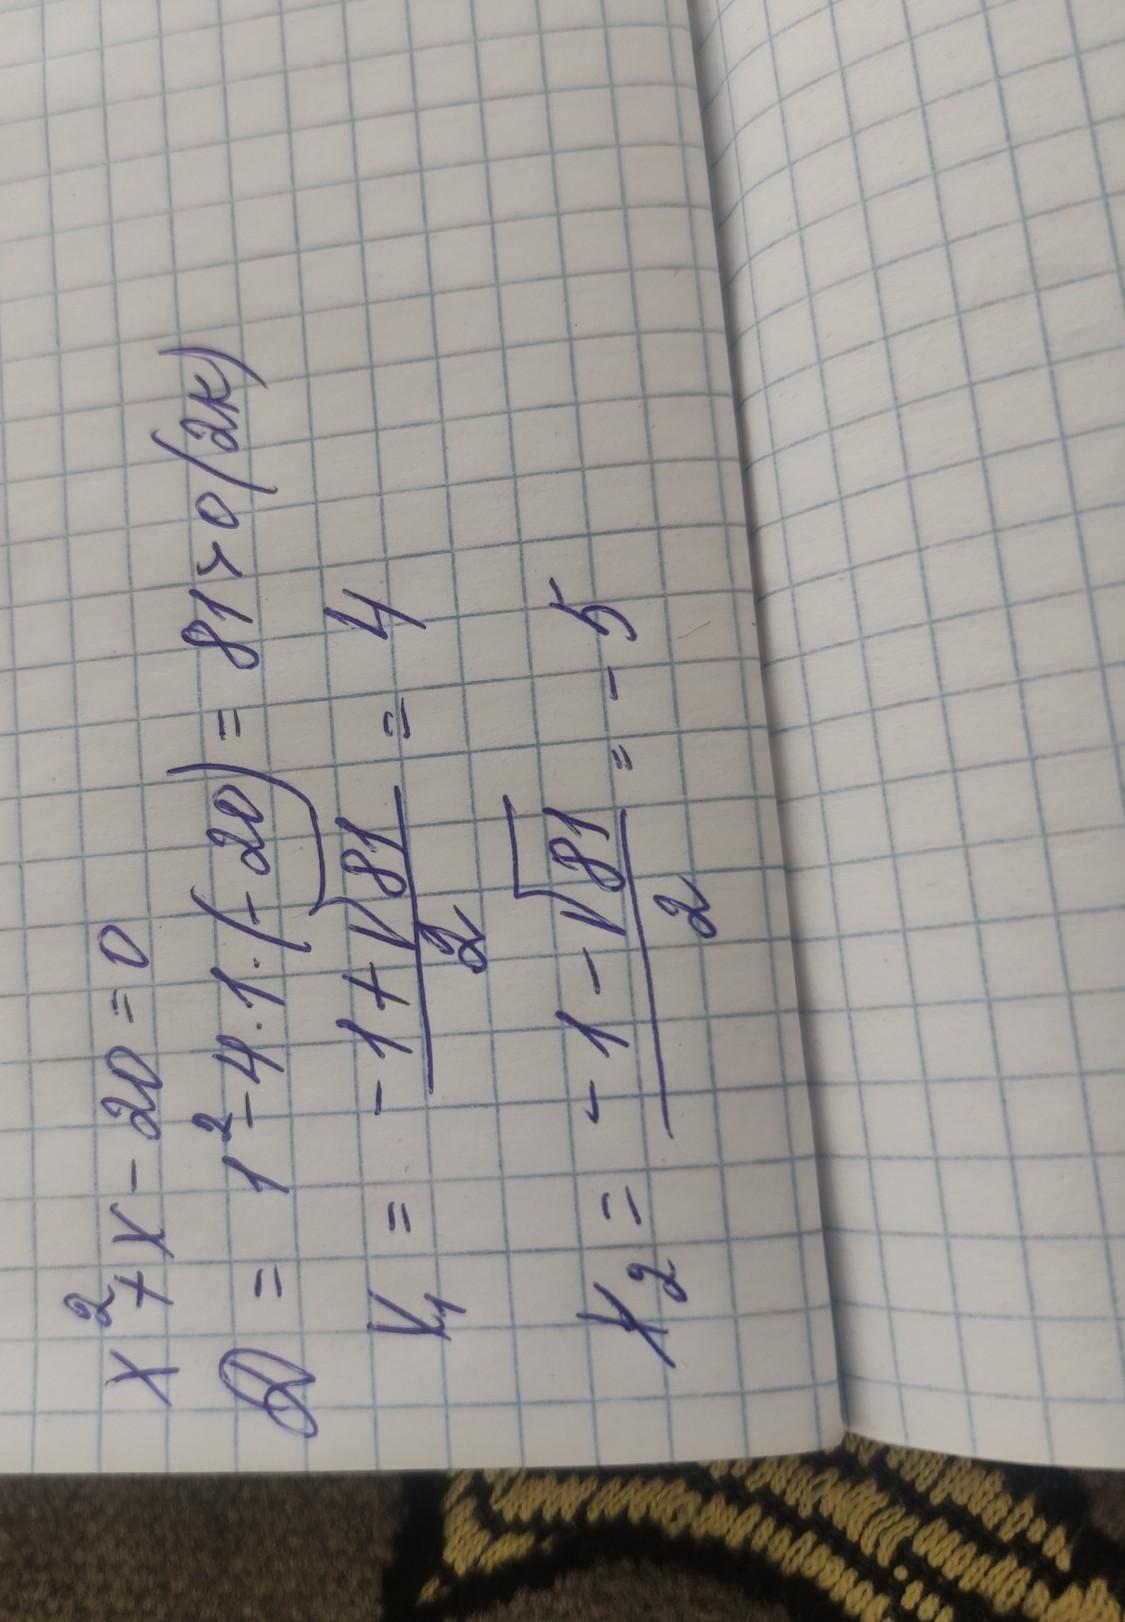 x² + x - 20 = 0
D = 1² - 4 · 1 · (-20) = 81 > 0 (2к)
x₁ = (-1 + √81)/2 = 4
x₂ = (-1 - √81)/2 = -5